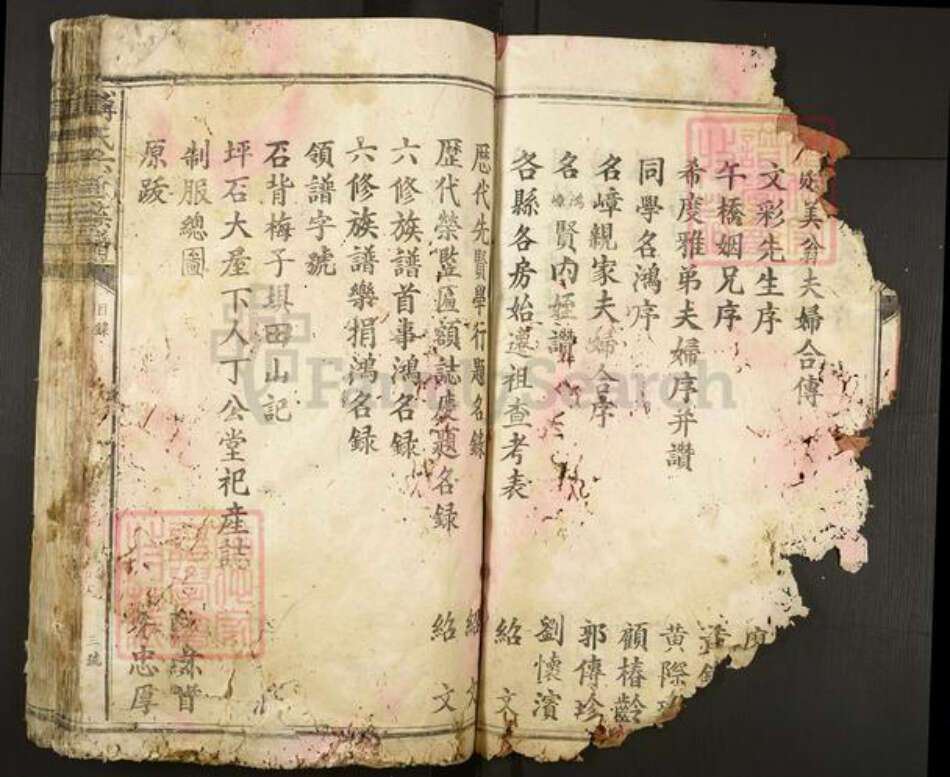 美翁夫婦合傳
文彩先生序
午橋姻兄序
希度雅弟夫婦序并讚
黃際
同學名鴻序
顧椿齡
名嶂親家夫婦合序
郭傳珍
名鴻嶂賢內姪讚
劉懷濱
各縣各房始遷祖查考表
紹文
歷代先賢學行題名錄
歷代榮監匾額誌慶題名録
紹文
六修族譜首事鴻名録
六修族譜樂捐鴻名録
領譜字號
石背梅子垻田山記
坪石大屋下人丁公堂祀産誌
制服總圖
原跋
忠厚
目錄
三號
FamilySearch